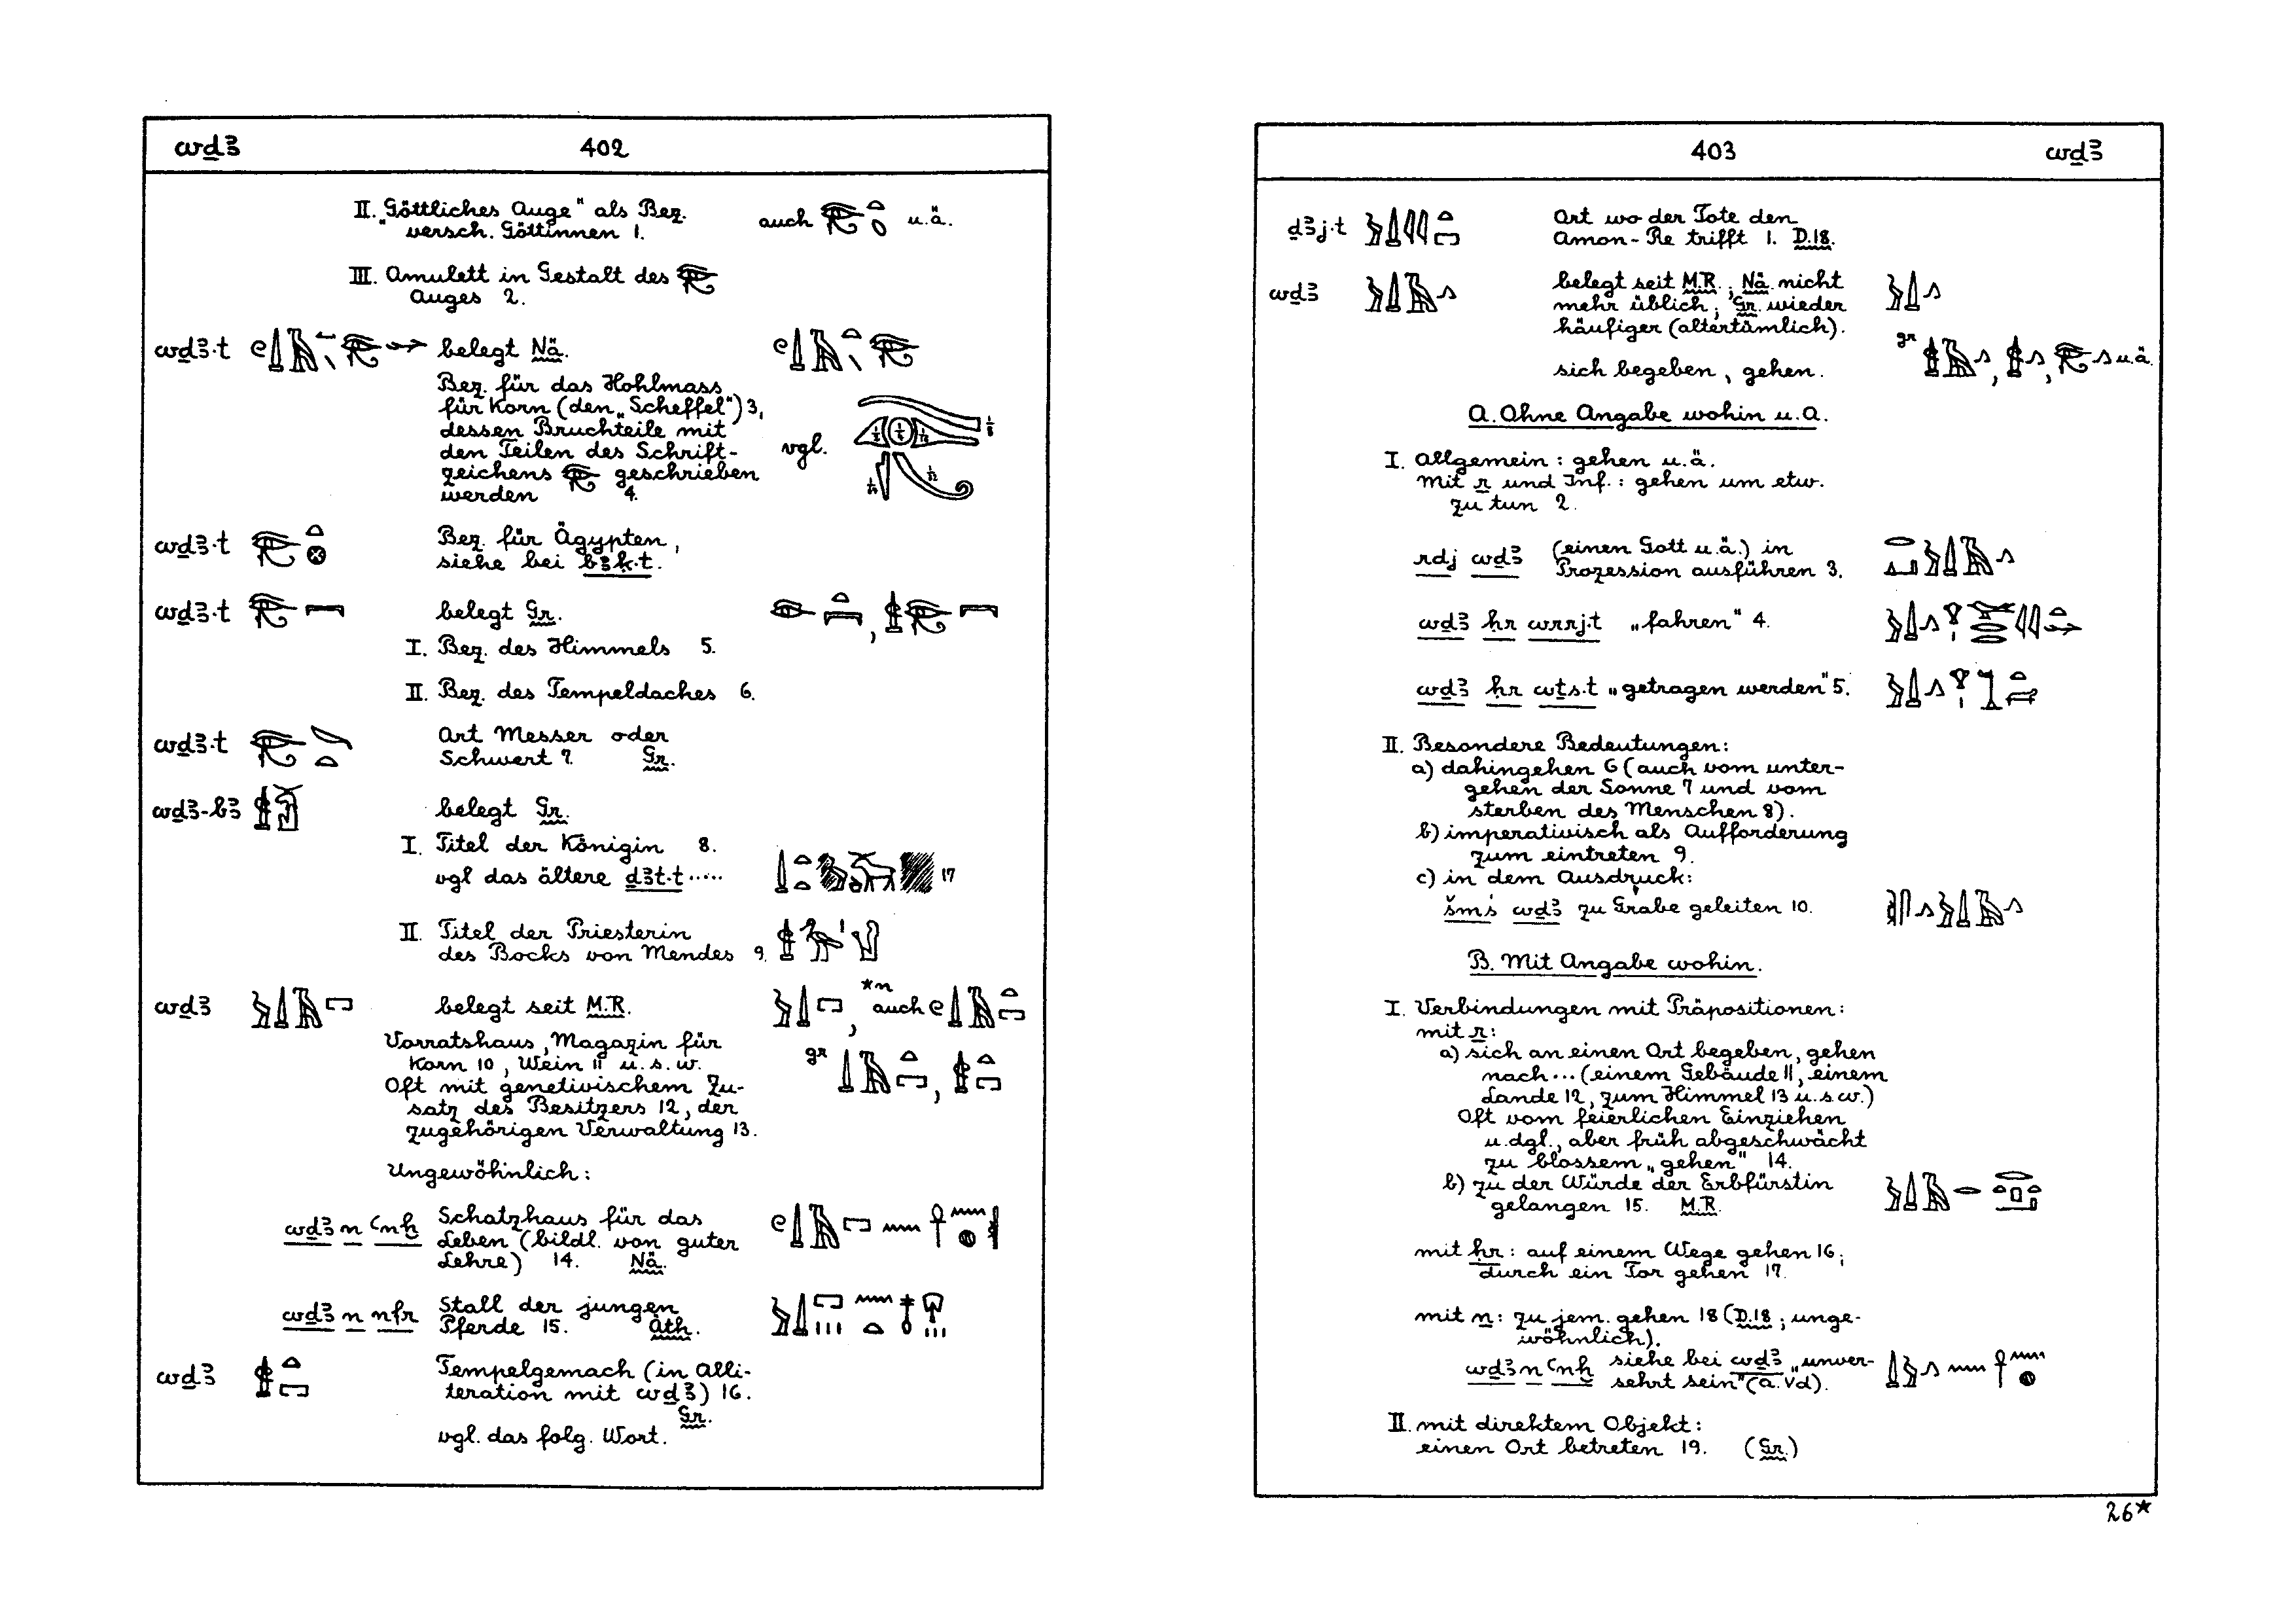 wḏꜣ 402
II. „Göttliches Auge“ als Bez. auch u.ä.
versch. Göttinnen 1.
III. Amulett in Gestalt des
Auges 2.
wḏꜣ·t belegt Nä.
Bez. für das Hohlmass
für Korn (den „Scheffel“) 3,
dessen Bruchteile mit
den Teilen des Schrift- vgl.
zeichens geschrieben
werden 4.
wḏꜣ·t Bez. für Ägypten,
siehe bei bꜣḳ·t.
wḏꜣ·t belegt Gr.
I. Bez. des Himmels 5.
II. Bez. des Tempeldaches 6.
wḏꜣ·t Art Messer oder
Schwert 7. Gr.
wḏꜣ-bꜣ belegt Gr.
I. Titel der Königin 8.
vgl das ältere ḏꜣt·t ····· 17
II. Titel der Priesterin
des Bocks von Mendes 9.
wḏꜣ belegt seit M.R. , *n auch
Vorratshaus, Magazin für gr ,
Korn 10, Wein 11 u.s.w.
Oft mit genetivischem Zu-
satz des Besitzers 12, der
zugehörigen Verwaltung 13.
Ungewöhnlich:
wḏꜣ n ꜥnḫ Schatzhaus für das
Leben (bildl. von guter
Lehre) 14. Nä.
wḏꜣ n nfr Stall der jungen
Pferde 15. Äth.
wḏꜣ Tempelgemach (in Alli-
teration mit wḏꜣ) 16.
Gr.
vgl. das folg. Wort.
403 wḏꜣ
ḏꜣj·t Ort wo der Tote den
Amon-Re trifft 1. D.18.
wḏꜣ belegt seit M.R.; Nä. nicht
mehr üblich; Gr. wieder
häufiger (altertümlich).
gr , , u.ä.
sich begeben, gehen.
A. Ohne Angabe wohin u.a.
I. Allgemein: gehen u.ä.
mit r und Inf.: gehen um etw.
zu tun 2.
rdj wḏꜣ (einen Gott u.ä.) in
Prozession ausführen 3.
wḏꜣ ḥr wrrjt „fahren“ 4.
wḏꜣ ḥr wṯs·t „getragen werden“ 5.
II. Besondere Bedeutungen:
a) dahingehen 6 (auch vom unter-
gehen der Sonne 7 und vom
sterben des Menschen 8).
b) imperativisch als Aufforderung
zum eintreten 9.
c) in dem Ausdruck:
šmś wḏꜣ zu Grabe geleiten 10.
B. Mit Angabe wohin.
I. Verbindungen mit Präpositionen:
mit r:
a) sich an einen Ort begeben, gehen
nach ··· (einem Gebäude 11, einem
Lande 12, zum Himmel 13 u.s.w.)
Oft vom feierlichen Einziehen
u.dgl., aber früh abgeschwächt
zu blossem „gehen“ 14.
b) zu der Würde der Erbfürstin
gelangen 15. M.R.
mit ḥr: auf einem Wege gehen 16;
durch ein Tor gehen 17.
mit n: zu jem. gehen 18 (D.18; unge-
wöhnlich).
wḏꜣ n ꜥnḫ siehe bei wḏꜣ „unver-
sehrt sein“ (A. V d).
II. mit direktem Objekt:
einen Ort betreten 19. (Gr.)
26*